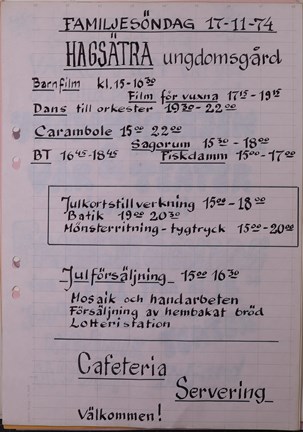 FAMILJESÖNDAG 17-11-74
HAGSÄTRA ungdomsgård
Barnfilm kl. 15-16 30
Film för vuxna 17 15 - 19 15
Dans till orkester 19 30 - 22 00
Carambole 15 00 22 00
Sagorum 15 30 - 18 00
BT 16 45 - 18 45 Fiskdamm 15 00 - 17 00
Julkortstillverkning 15 00 - 18 00
Batik 19 00 20 30
Mönsterritning - tygtryck 15 00 - 20 00
Julförsäljning 15 00 16 30
Mosaik och handarbeten
Försäljning av hembakat bröd
Lotteristation
Cafeteria
Servering
Välkommen!